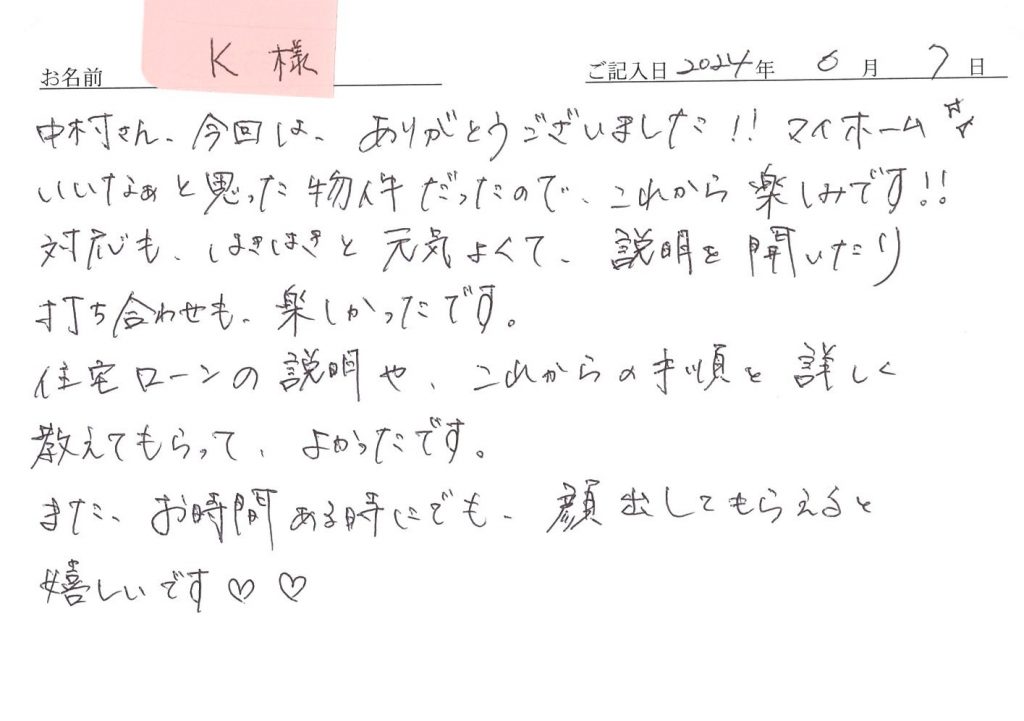 お名前 K 様 ご記入日 2024年 6月 7日
中村さん、今回は、ありがとうございました!! マイホーム☆☆
いいなぁと思った物件だったので、これから楽しみです!!
対応も、はきはきと元気よくて、説明を聞いたり
打ち合わせも、楽しかったです。
住宅ローンの説明や、これからの手順を詳しく
教えてもらって、よかったです。
また、お時間ある時にでも、顔出してもらえると
嬉しいです♡ ♡